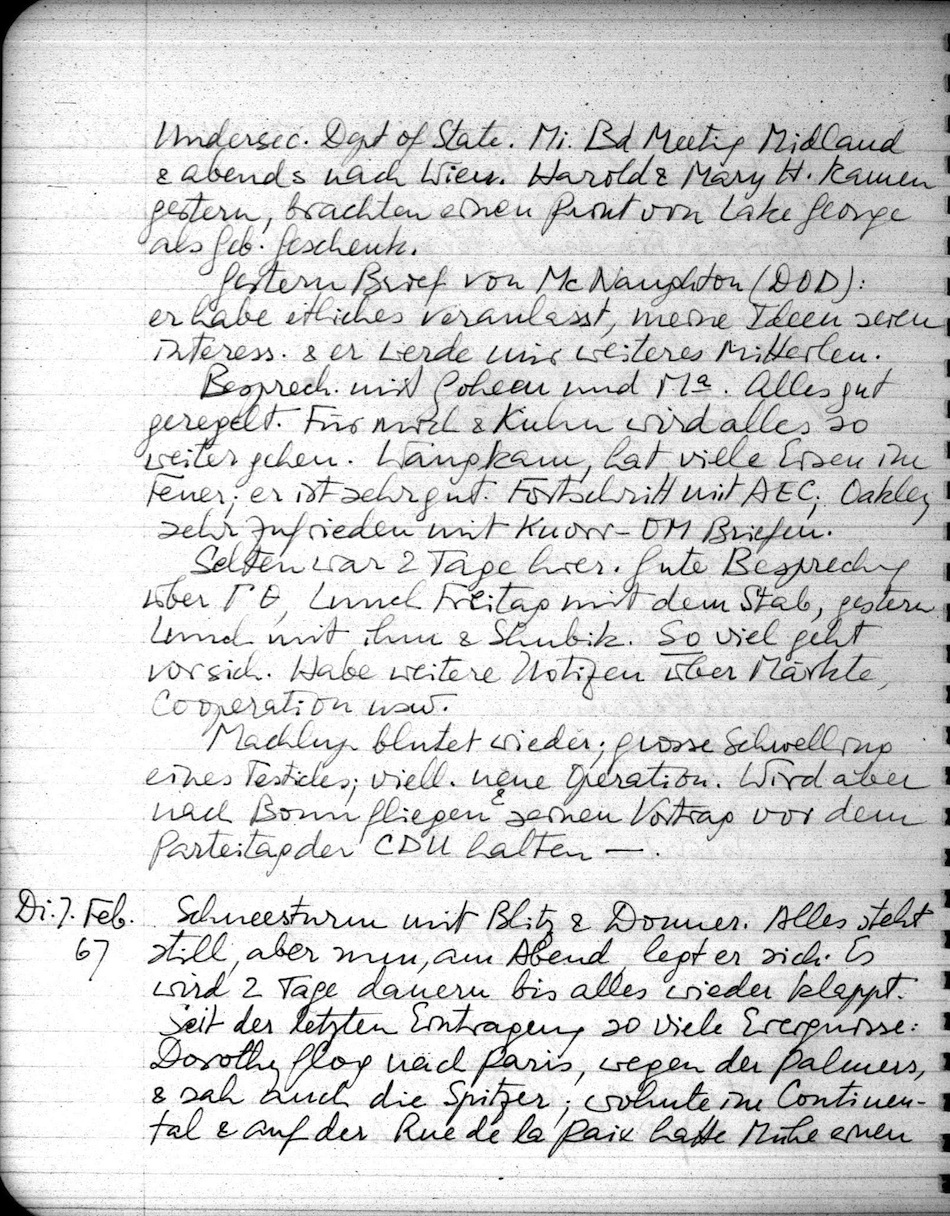 Undersec. Dept of State. Mi. Bd Meeting Midland
& abends nach Wien. Harold & Mary H. kamen
gestern, brachten einen Print von Lake George
als Geb. Geschenk.
Gestern Brief von McNaughton (DOD):
er habe etliches veranlasst, meine Ideen seien
interess. & er werde mir weiteres mitteilen.
Besprech. mit Goheen und Ma. Alles gut
geregelt. Für mich & Kuhn wird alles so
weiter gehen. Langkam, hat viele Eisen im
Feuer; er ist sehr gut. Fortschritt mit AEC; Oakley
sehr zufrieden mit Knorr-OM Briefen.
Selten war 2 Tage hier. Gute Besprechg
über Γ Θ, Lunch Freitag mit dem Stab, gestern
Lunch mit ihm & Shubik. So viel geht
vor sich. Habe weitere Notizen über Märkte,
Cooperation usw.
Machlup blutet wieder; grosse Schwellung
eines Testicles; viell. neue Operation. Wird aber
nach Bonn fliegen & seinen Vortrag vor dem
Parteitag der CDU halten —.
Di. 7. Feb. Schneesturm mit Blitz & Donner. Alles steht
67 still, aber nun, am Abend, legt er sich. Es
wird 2 Tage dauern bis alles wieder klappt.
Seit der letzten Eintragung so viele Ereignisse:
Dorothy flog nach Paris, wegen der Palmers,
& sah auch die Spitzer; wohnte im Continen-
tal & auf der Rue de la Paix hatte Mühe einen